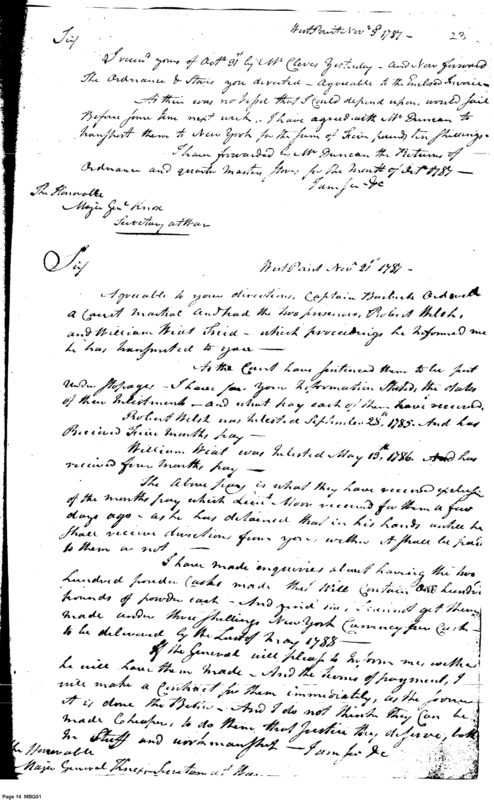 West Point Novr 9th 1787 - 23
Sir/
I received yours of Octr 31st by Mr Cleves Yesterday - and Now forward
The Ordnance & Stores you directed - Agreeable to the Enclosed Invoice -
As there was no Vessel that I could depend upon, would sail
Before some time next week, I have agreed with Mr Duncan to
transport them to New York for the sum of four pounds ten shillings -
I have forwarded by Mr Duncan the Returns of
Ordnance and quarter Masters Stores for the Month of Octr 1787 -
I am Sir &c
The Honorable
Major Genl Knox
Secretary at War
Sir/
West Point Novr 21st 1787 -
Agreeable to your directions, Captain Burbeck Ordered
a Court Martial and had the two prisoners, Robert Welsh,
and William Wiat Tried - which proceedings he informed me
he has transmitted to you -
As the Court have sentenced them to be put
under Stopages - I have for your Information Stated the dates
of their Enlistments - and what pay each of them have received.
Robert Welsh was Enlisted September 28th 1785. And has
Received Five Months pay -
William Wiat was Enlisted May 13th 1786. And has
received four months pay -
The Above pay is what they have received exclusive
of the months pay which Lieut Moor received for them a few
days ago - as he has detained that in his hands untill he
Shall receive directions from you, wether it shall be paid
to them or not -
I have made enquiries about having the two
hundred powder Casks made that Will Contain One hundred
pounds of powder each - And find Sir, I cannot get them
made under three shellings New York Currency per Cask -
to be delivered by the Last of May 1788 -
If the General will please to Inform me, wether
he will have them made - And the terms of payment, I
will make a Contract for them immediately, as the sooner
it is done the Better - And I do not think they Can be
made Cheaper, to do them that Justice they deserve, both
In Stuff and workmanship - I am Sir &c
The Honorable
Major General Knox - Secretary at War -
Page 14 MBG01